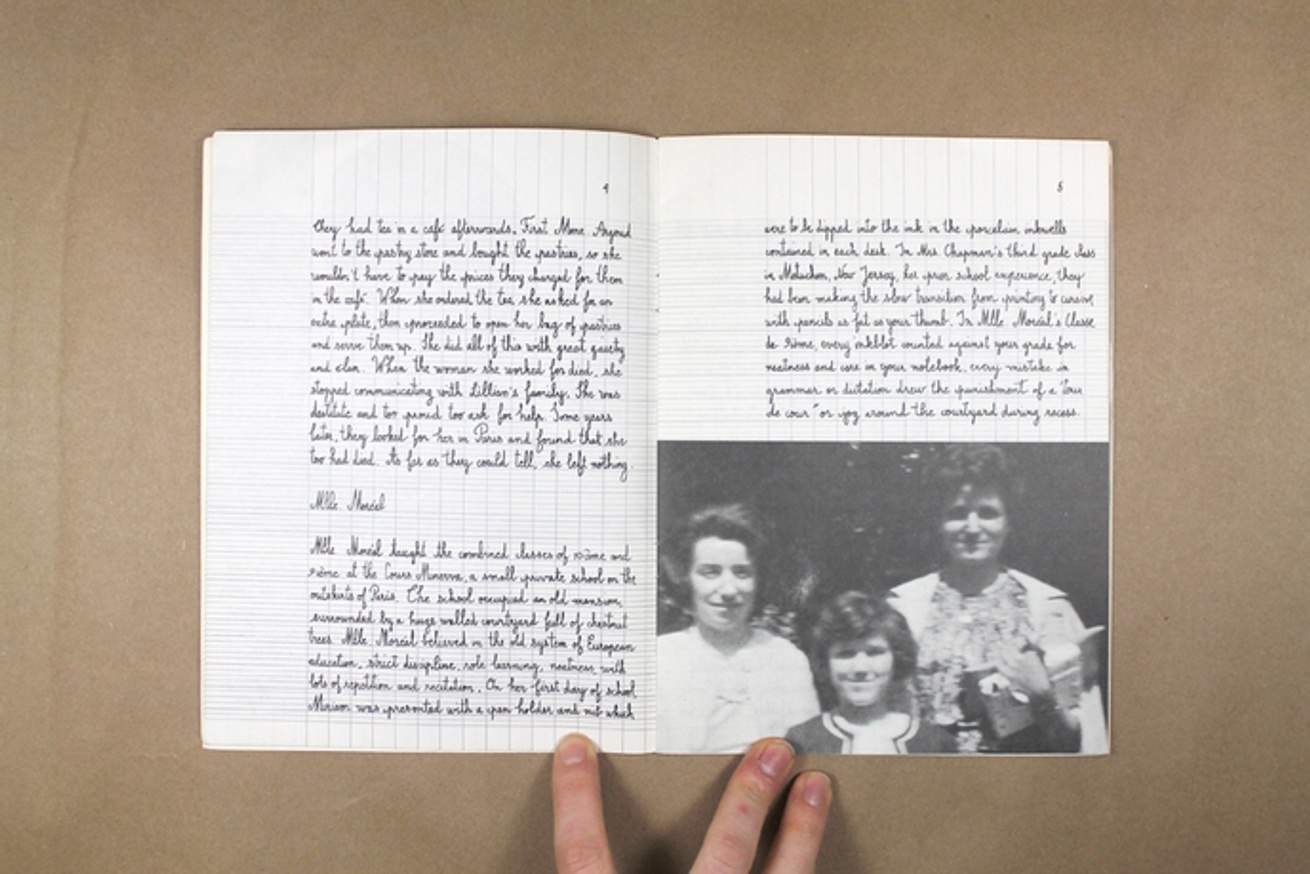 4
They had tea in a café afterwards. First Mme Argond
went to the pastry store and bought the pastries, so she
wouldn't have to pay the prices they charged for them
in the café. When she ordered the tea she asked for an
extra plate, then proceeded to open her bag of pastries
and serve them up. She did all of this with great gaiety
and élan. When the woman she worked for died, she
stopped communicating with Lillian's family. She was
destitute and too proud too ask for help. Some years
later, they looked for her in Paris and found that she
too had died. As far as they could tell, she left nothing.
Mlle. Moréal
Mlle Moréal taught the combined classes of 10ième and
9ième at the Cours Minerva, a small private school on the
outskirts of Paris. The school occupied an old mansion,
surrounded by a huge walled courtyard full of chestnut
trees. Mlle. Moréal believed in the old system of European
education, strict discipline, role learning, neatness, with
lots of repetition and recitation. On her first day of school
Miriam was presented with a pen holder and nib which
5
were to be dipped into the ink in the porcelain inkwells
contained in each desk. In Mrs. Chapman's third grade class
in Metuchen, New Jersey, her prior school experience, they
had been making the slow transition from printing to cursive
with pencils as fat as your thumb. In Mlle Moréal's Classe
de 9ième, every inkblot counted against your grade for
neatness and care in your notebook, every mistake in
grammar or dictation drew the punishment of a "Tour
de cour" or jog around the courtyard during recess.